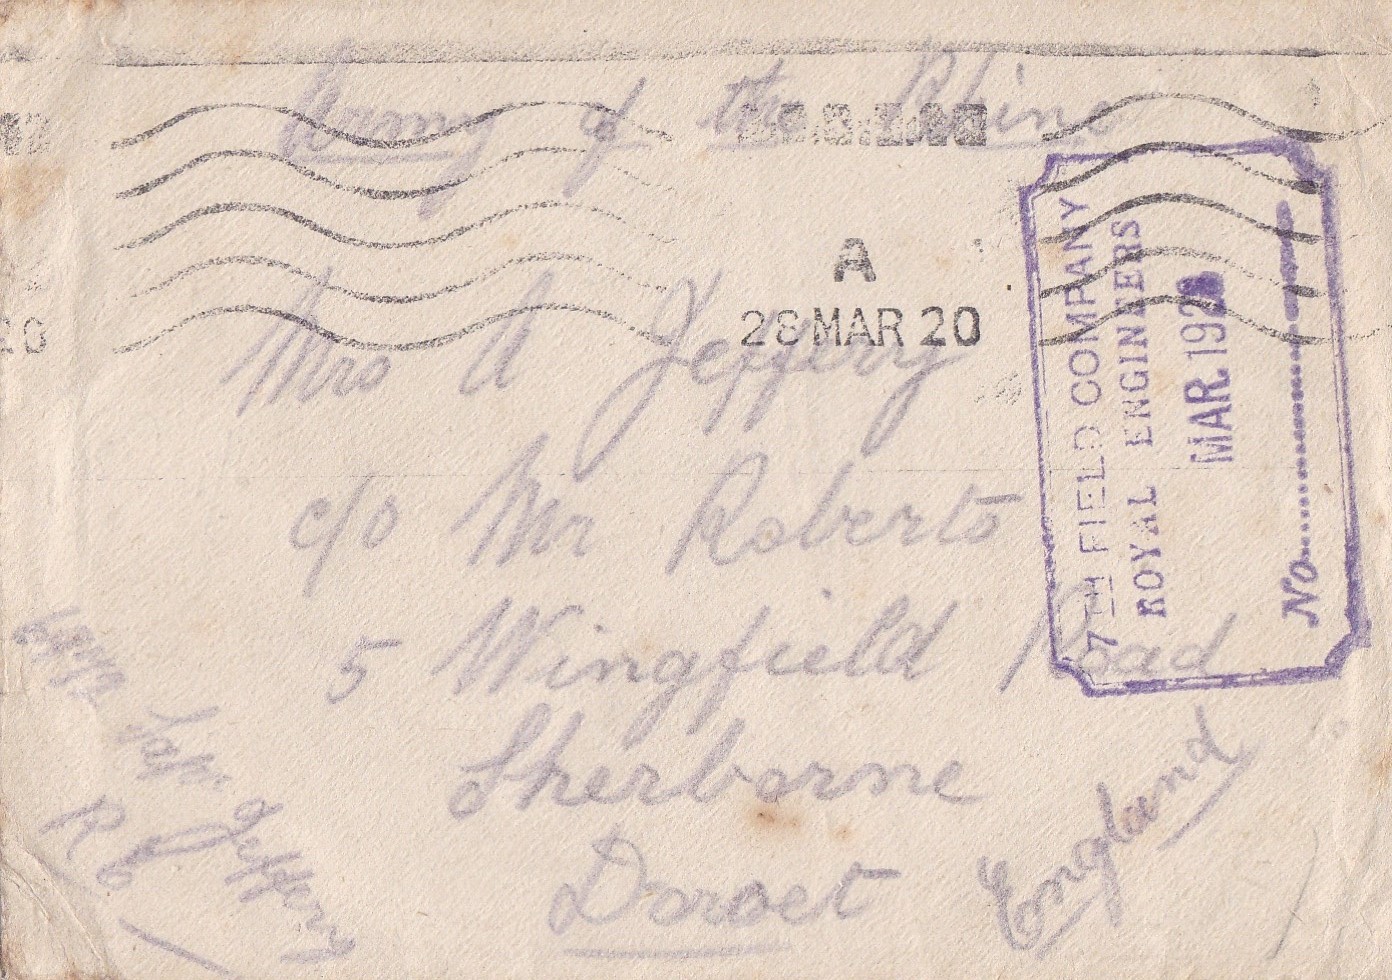 Army of the Rhine
A
28 MAR 20
Mrs A Jeffery
c/o Mr Roberts
5 Wingfield Road
Sherborne
Dorset
England
Sapr. Jeffery
R E
7TH FIELD COMPANY
ROYAL ENGINEERS
MAR. 192
No
20